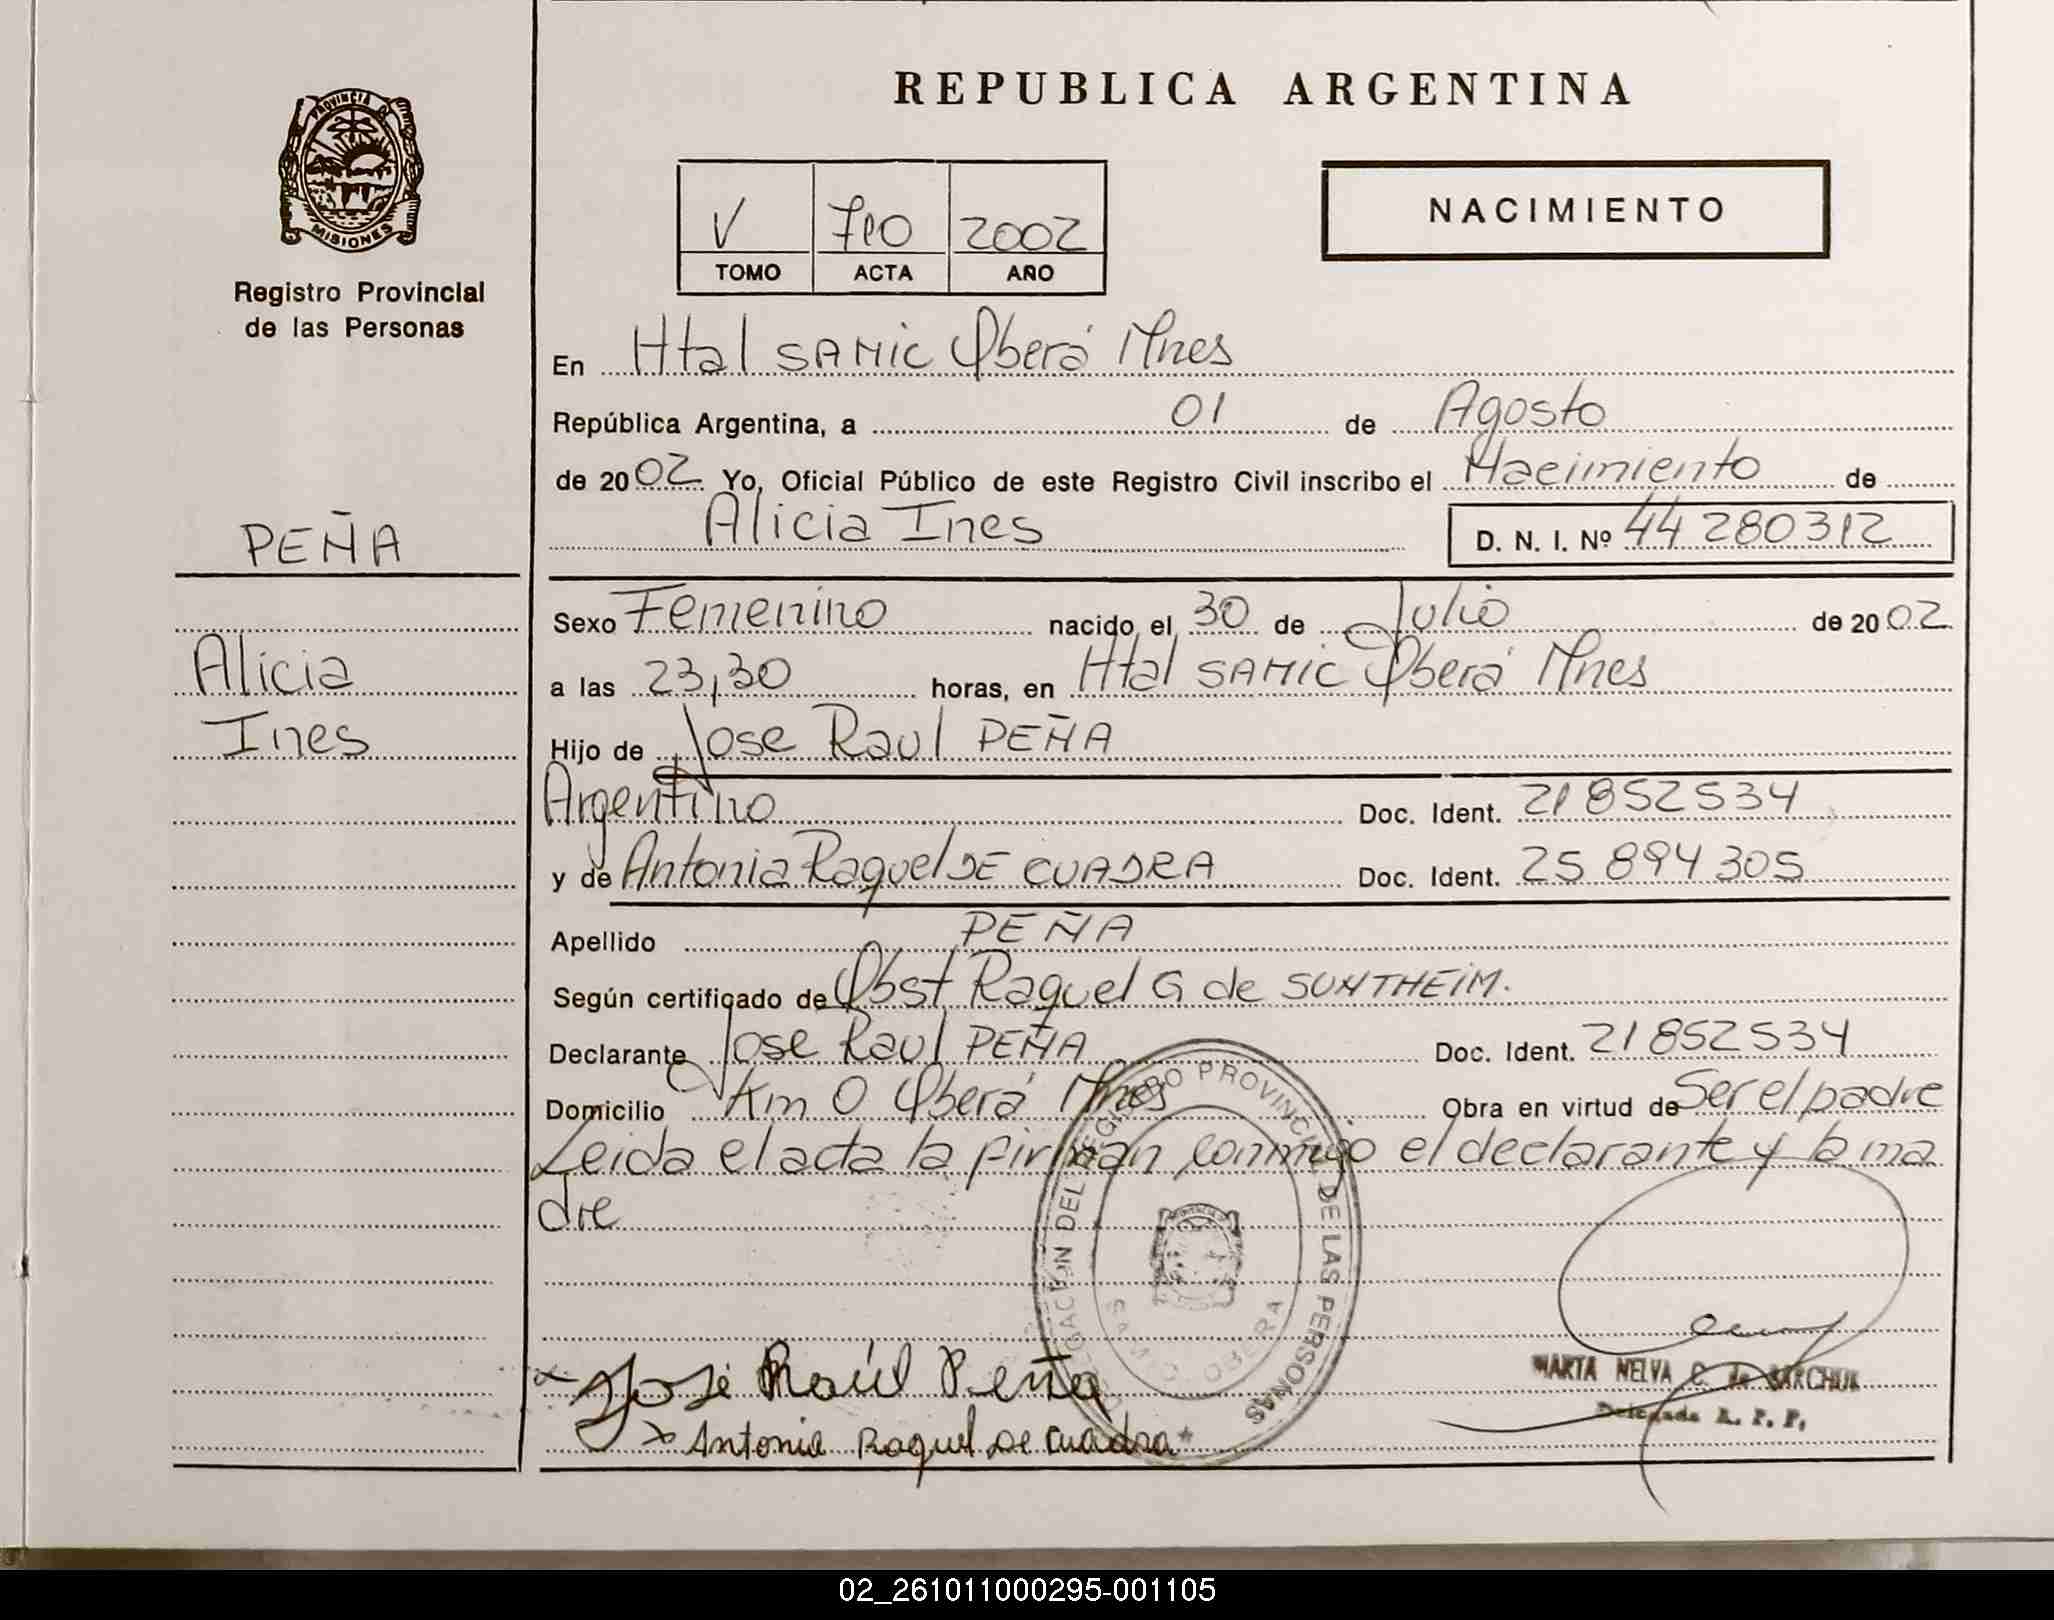 REPUBLICA ARGENTINA
PROVINCIA D
MISIONES
Registro Provincial
de las Personas
V 710 2002
TOMO ACTA AÑO
NACIMIENTO
En Htal SAMIC Oberá Mnes
República Argentina, a 01 de Agosto
de 2002 Yo, Oficial Público de este Registro Civil inscribo el Nacimiento de
Alicia Ines D. N. I. Nº 44 280312
PEÑA
Alicia
Ines
Sexo Femenino nacido el 30 de Julio de 2002
a las 23,30 horas, en Htal SAMIC Oberá Mnes
Hijo de Jose Raul PEÑA
Argentino Doc. Ident. 21 852534
y de Antonia Raquel DE CUADRA Doc. Ident. 25 894305
Apellido PEÑA
Según certificado de Obst Raquel G de SUNTHEIM.
Declarante Jose Raul PEÑA Doc. Ident. 21852534
Domicilio Km 0 Oberá Mnes Obra en virtud de Ser el padre
Leida el acta la firman conmigo el declarante y la ma
dre
DELEGACION DEL REGISTRO PROVINCIAL DE LAS PERSONAS
OBERA
José Raúl Peña
x Antonia Raquel De Cuadra
MARTA NELVA C. de SARCHUK
Delegada R. P. P.
02_261011000295-001105